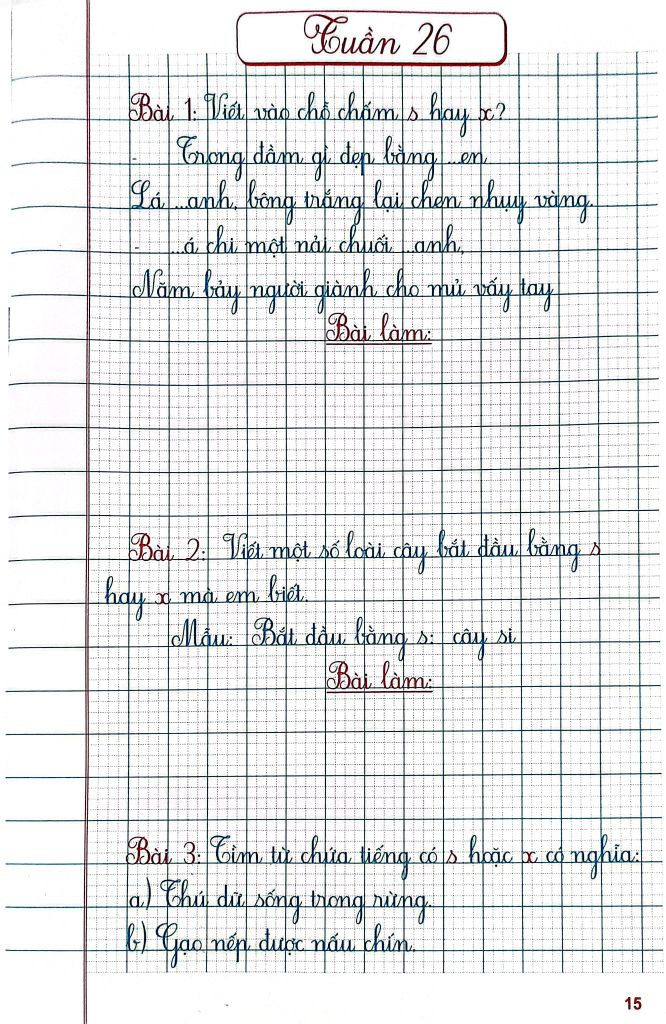 Tuần 26
Bài 1: Viết vào chỗ chấm s hay x?
- Trong đầm gì đẹp bằng ...en
Lá ...anh, bông trắng lại chen nhụy vàng.
- ...á chi một nải chuối ...anh,
Năm bảy người giành cho mủ vấy tay
Bài làm:
Bài 2: Viết một số loài cây bắt đầu bằng s
hay x mà em biết.
Mẫu: Bắt đầu bằng s: cây si
Bài làm:
Bài 3: Tìm từ chứa tiếng có s hoặc x có nghĩa:
a) Thú dữ sống trong rừng.
b) Gạo nếp được nấu chín.
15